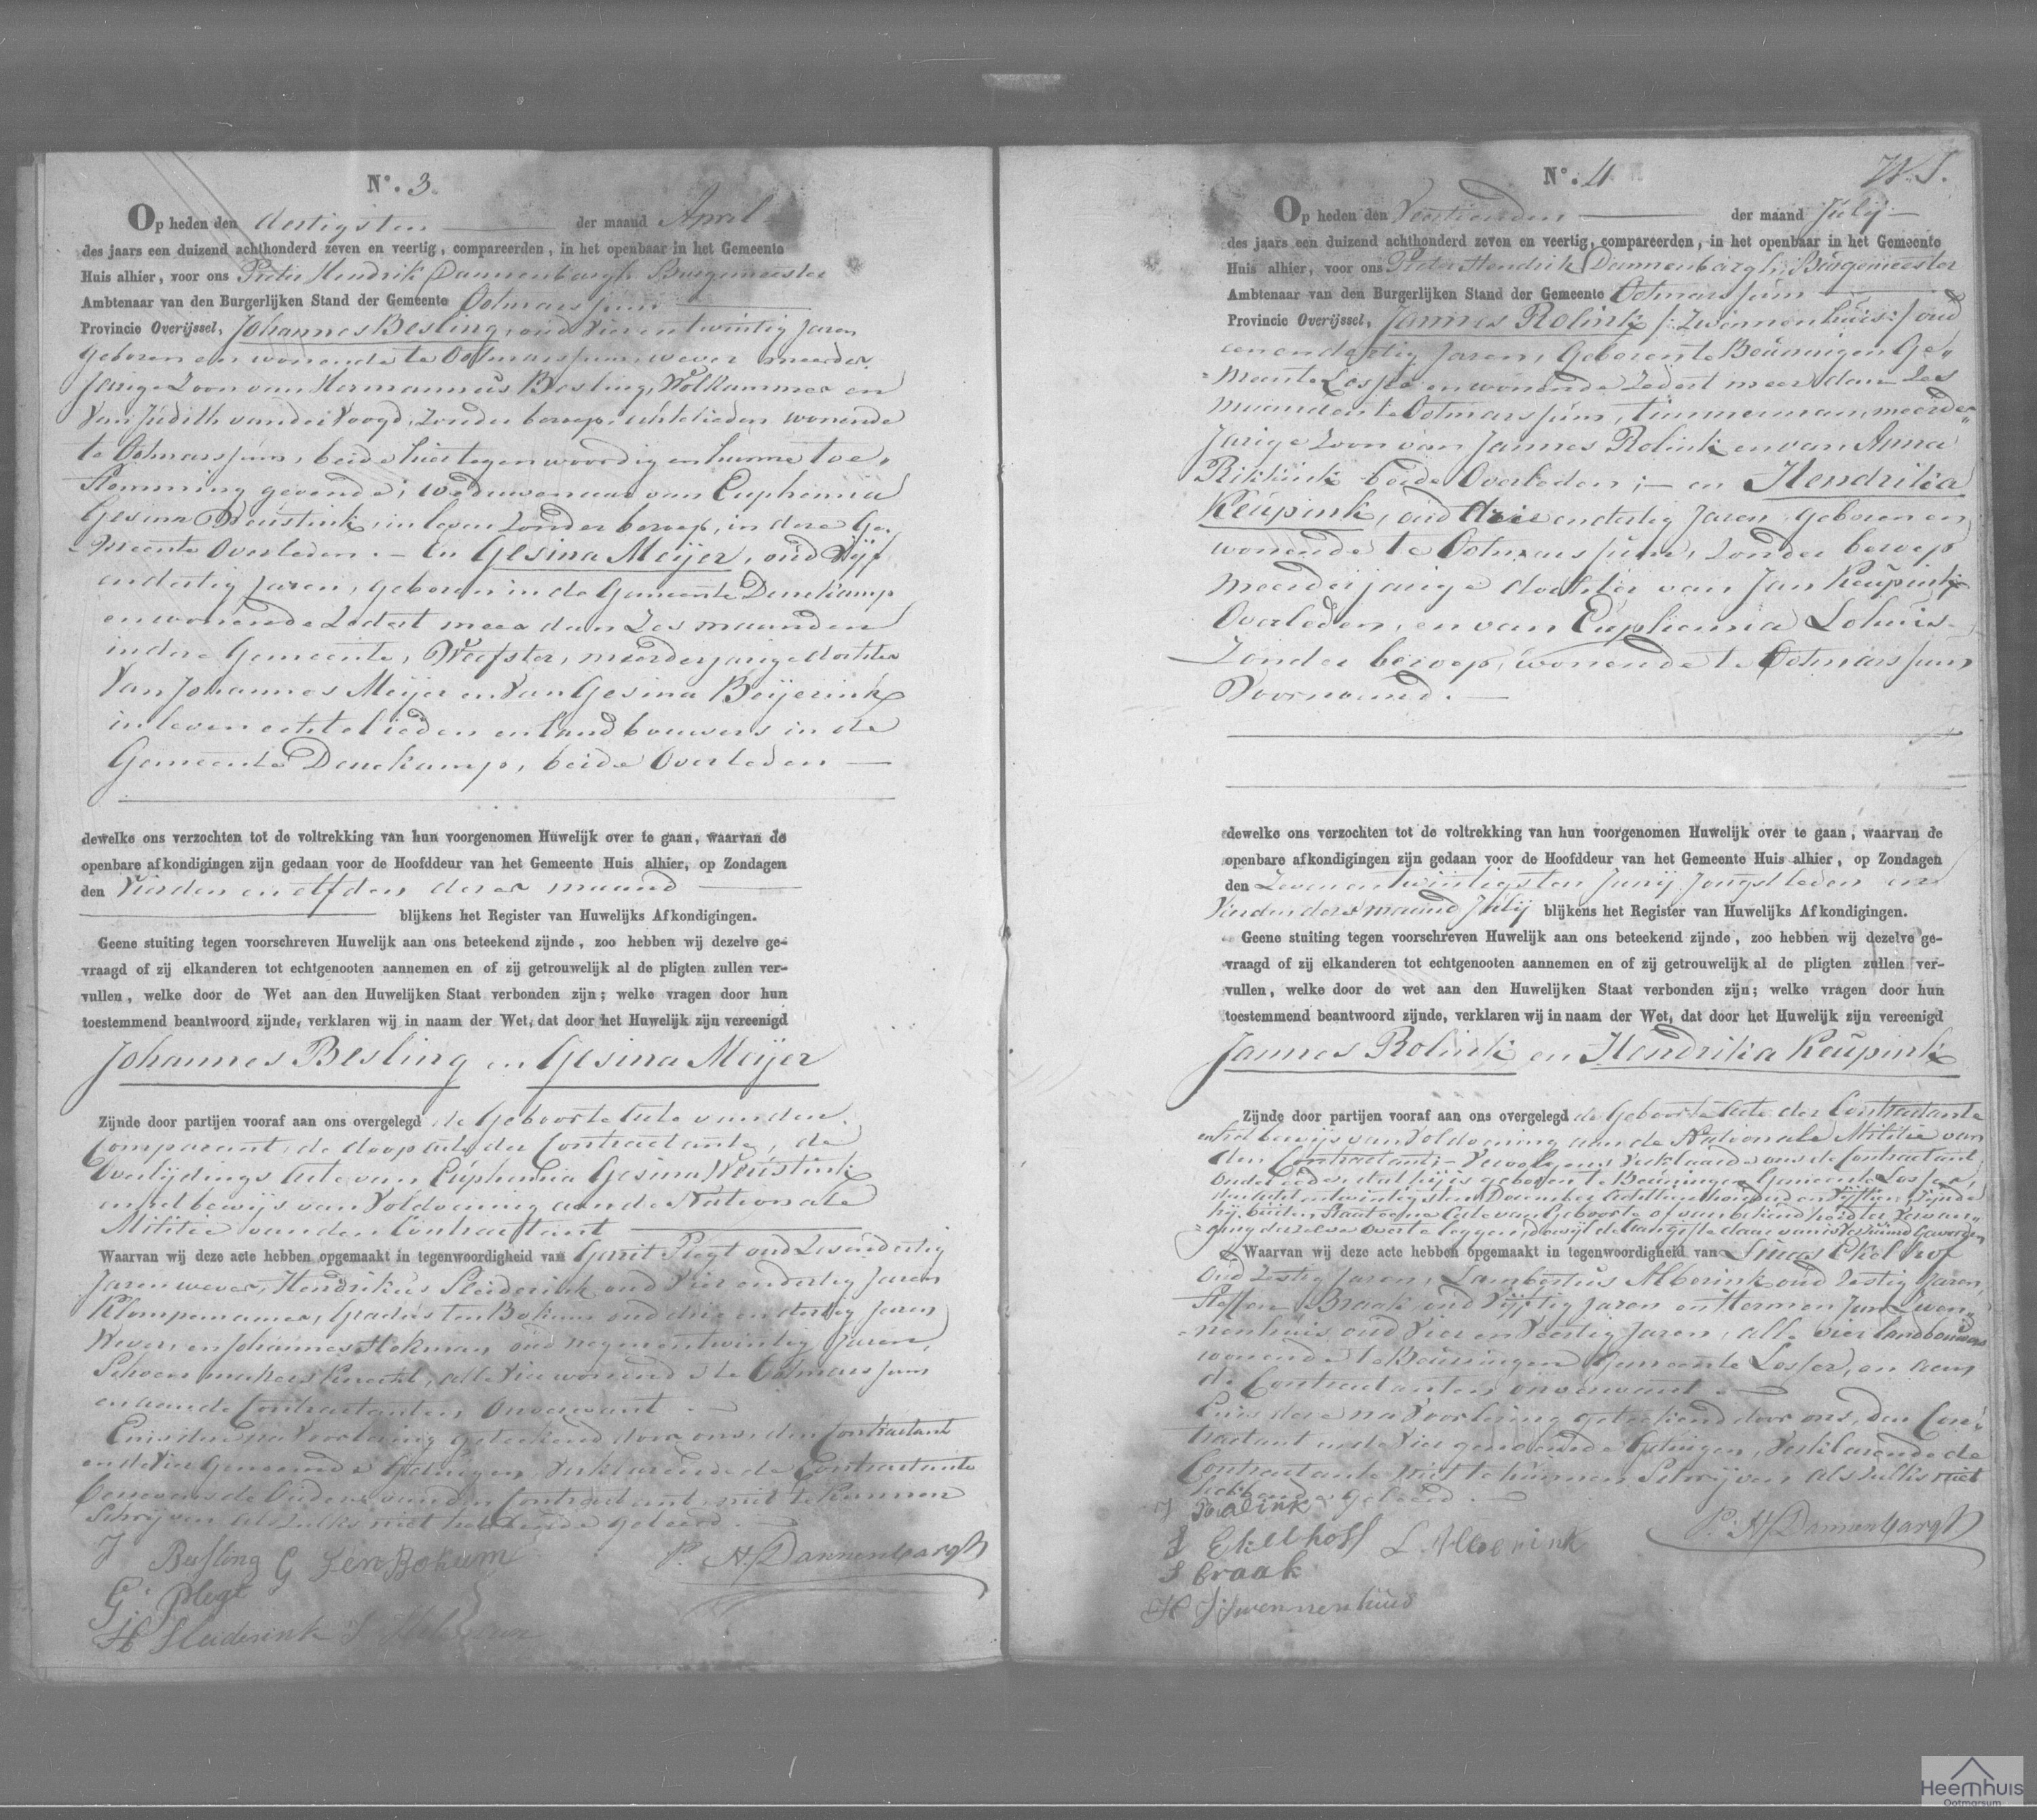 N°. 3
Op heden den dertigsten der maand April
des jaars een duizend achthonderd zeven en veertig, compareerden, in het openbaar in het Gemeente
Huis alhier, voor ons Pieter Hendrik Dannenbargh Burgemeester
Ambtenaar van den Burgerlijken Stand der Gemeente Ootmarssum
Provincie Overijssel, Johannes Besling, oud vier en twintig Jaren
geboren en wonende te Ootmarssum, wever meerder
Jarige Zoon van Hermannus Besling, Wolkammer en
van Judith van der Voogd, zonder beroep, echtelieden wonende
te Ootmarssum, beide hier tegenwoordig en hunne toe,
Stemming gevende; weduwenaar van Euphemia
Gesina Weustink, in leven zonder beroep, in deze Ge,
meente Overleden. — En Gesina Meijer, oud Vijf
en dertig Jaren, geboren in de Gemeente Denekamp
en wonende zedert meer dan Zes maanden
in deze Gemeente, Weefster, meerderjarige dochter
Van Johannes Meijer en Van Gesina Beijerink
in leven echtelieden en landbouwers in de
Gemeente Denekamp, beide Overleden —
dewelke ons verzochten tot de voltrekking van hun voorgenomen Huwelijk over te gaan, waarvan de
openbare afkondigingen zijn gedaan voor de Hoofddeur van het Gemeente Huis alhier, op Zondagen
den Vierden en elfden dezer maand
blijkens het Register van Huwelijks Afkondigingen.
Geene stuiting tegen voorschreven Huwelijk aan ons beteekend zijnde, zoo hebben wij dezelve ge-
vraagd of zij elkanderen tot echtgenooten aannemen en of zij getrouwelijk al de pligten zullen ver-
vullen, welke door de Wet aan den Huwelijken Staat verbonden zijn; welke vragen door hun
toestemmend beantwoord zijnde, verklaren wij in naam der Wet, dat door het Huwelijk zijn vereenigd
Johannes Besling en Gesina Meijer
Zijnde door partijen vooraf aan ons overgelegd de Geboorte acte van den
Comparant, de doopacte der Contractante, de
Overlijdings Acte van Euphemia Gesina Weustink
en het bewijs van Voldoening aan de Nationale
Militie van den Contractant
Waarvan wij deze acte hebben opgemaakt in tegenwoordigheid van Gerrit Plegt oud Zes en dertig
Jaren wever, Hendrikus Sleiderink oud Vier en dertig Jaren
Klompemaker, Gradus ten Bokum oud drie en dertig Jaren
Wever, en Johannes Hokman oud negen en twintig Jaren,
Schoenmakers Knecht, alle vier wonende te Ootmarssum
en aan de Contractanten Onverwant. —
En is deze na Voorlezing geteekend door ons, den Contractant
en de Vier Genoemde Getuigen, verklarende de Contractante
benevens de Ouders van den Contractant niet te kunnen
Schrijven als zulks niet hebbende geleerd. —
J Besling G ten Bokum P. H. Dannenbargh
G. Plegt
H Sleiderink J
N°. 4 W. J.
Op heden den Veertienden der maand Julij
des jaars een duizend achthonderd zeven en veertig, compareerden, in het openbaar in het Gemeente
Huis alhier, voor ons Pieter Hendrik Dannenbargh, Burgemeester
Ambtenaar van den Burgerlijken Stand der Gemeente Ootmarssum
Provincie Overijssel, Jannes Rolink /: Zwennenhuis :/ oud
een en dertig Jaren, Geboren te Beuningen Ge,
meente Losser en wonende zedert meer dan Zes
maanden te Ootmarssum, timmerman, meerder
Jarige Zoon van Jannes Rolink en van Anna
Rikkink beide Overleden; — en Hendrikia
Keupink, oud drie en dertig Jaren geboren en
wonende te Ootmarssum, zonder beroep
Meerderjarige dochter van Jan Keupink
Overleden, en van Euphemia Lohuis
Zonder beroep, wonende te Ootmarssum
Voornoemd. —
dewelke ons verzochten tot de voltrekking van hun voorgenomen Huwelijk over te gaan, waarvan de
openbare afkondigingen zijn gedaan voor de Hoofddeur van het Gemeente Huis alhier, op Zondagen
den Zeven en twintigsten Junij Jongstleden en
Vierden dezer maand Julij blijkens het Register van Huwelijks Afkondigingen.
Geene stuiting tegen voorschreven Huwelijk aan ons beteekend zijnde, zoo hebben wij dezelve ge-
vraagd of zij elkanderen tot echtgenooten aannemen en of zij getrouwelijk al de pligten zullen ver-
vullen, welke door de wet aan den Huwelijken Staat verbonden zijn; welke vragen door hun
toestemmend beantwoord zijnde, verklaren wij in naam der Wet, dat door het Huwelijk zijn vereenigd
Jannes Rolink en Hendrikia Keupink
Zijnde door partijen vooraf aan ons overgelegd de Geboorte Acte der Contractante
en het bewijs van Voldoening aan de Nationale Militie van
den Contractant; Vervolgens Verklaarde ons de Contractant
onder eede, dat hij is geboren te Beuningen Gemeente Losser,
den achtentwintigsten December achttien honderd en vijftien, zijnde
hij buiten Staat eene Acte van Geboorte of van bekendheid ter vervan,
ging derzelve over te leggen, dewijl de aangifte daar van is verzuimd geworden
Waarvan wij deze acte hebben opgemaakt in tegenwoordigheid van Ekelhof
oud Zestig Jaren, Lambertus Alberink oud Zestig Jaren,
Steffen Braak, oud Vijftig Jaren en Hermen Jan Zwen,
nenhuis oud Vier en Veertig Jaren, alle vier landbouwers
wonende te Beuningen Gemeente Losser, en aan
de Contractanten onverwant. —
En is deze na Voorlezing geteekend door ons, den Con,
tractant en de Vier genoemde Getuigen, Verklarende de
Contractante niet te kunnen Schrijven als zulks niet
hebbende geleerd. —
J Roalink
S Ekelhoff L Alberink P. H. Dannenbargh
S braak
H J Swennenhuis
Heemhuis
Ootmarsum